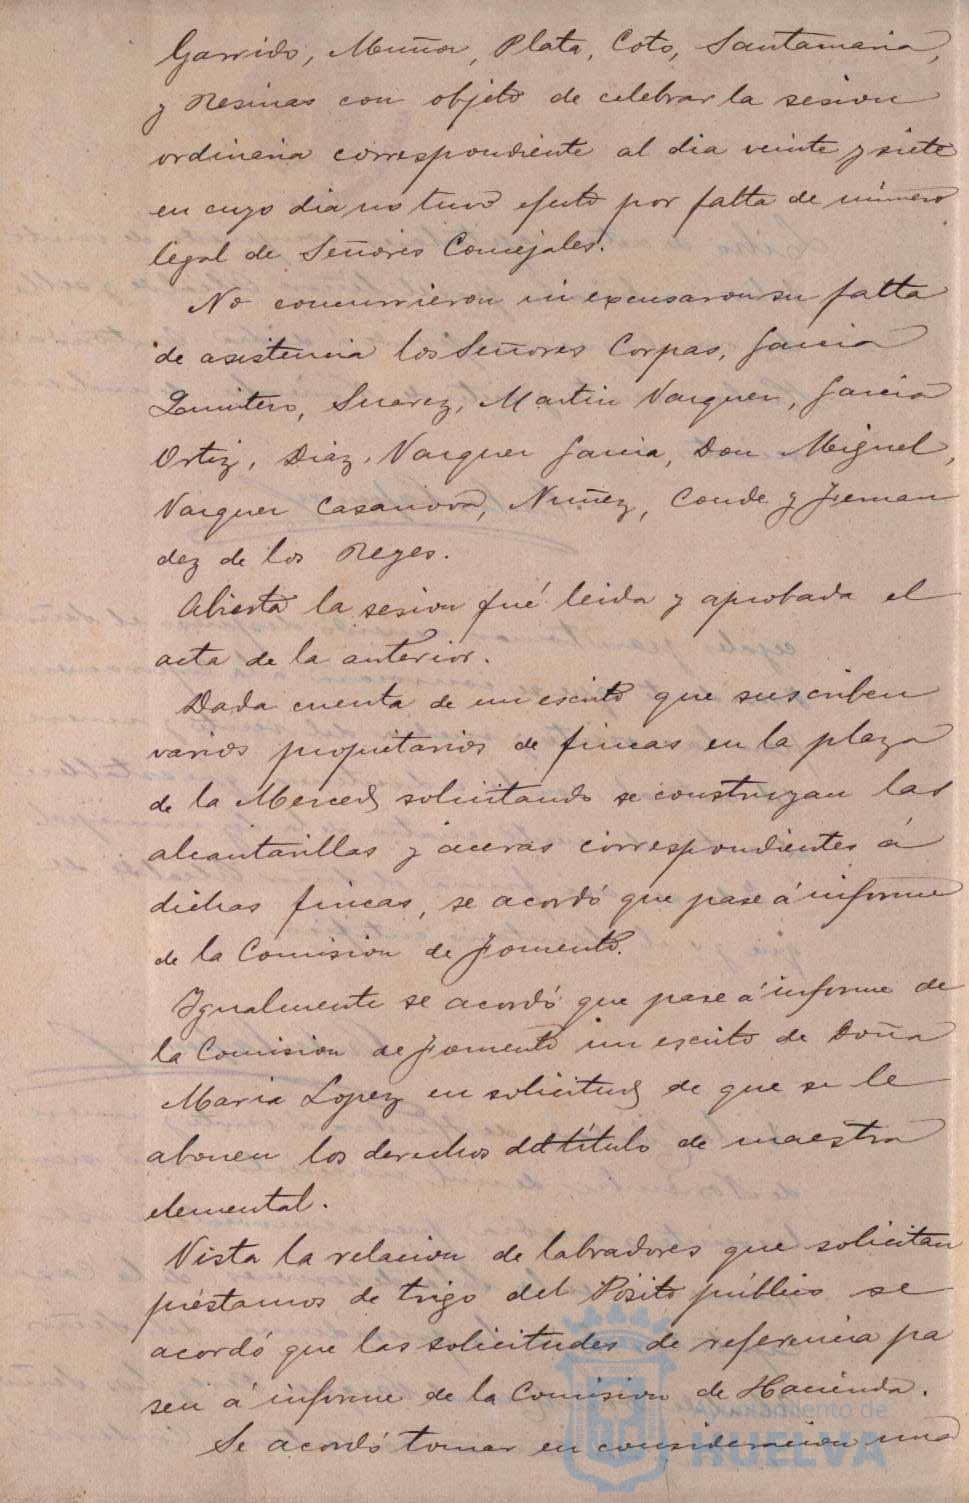 Garrido, Muñoz, Plata, Coto, Santamaria,
y Resinas con objeto de celebrar la sesion
ordinaria correspondiente al dia veinte y siete
en cuyo dia no tuvo efecto por falta de número
legal de Señores Concejales.
No concurrieron ni excusaron su falta
de asistencia los Señores Corpas, Garcia
Quintero, Suarez, Martin Vazquez, Garcia
Ortiz, Diaz, Vazquez Garcia, Don Miguel,
Vazquez Casanova, Nuñez, Conde y Fernan
dez de los Reyes.
Abierta la sesion fué leida y aprobada el
acta de la anterior.
Dada cuenta de un escrito que suscriben
varios propietarios de fincas en la plaza
de la Merced solicitando se construyan las
alcantarillas y aceras correspondientes á
dichas fincas, se acordó que pase á informe
de la Comision de Fomento.
Igualmente se acordó que pase á informe de
la Comision de Fomento un escrito de Doña
Maria Lopez en solicitud de que se le
abonen los derechos del título de maestra
elemental.
Vista la relacion de labradores que solicitan
préstamos de trigo del Pósito público se
acordó que las solicitudes de referencia pa
sen á informe de la Comision de Hacienda.
Se acordó tomar en consideracion una
Ayuntamiento de
HUELVA